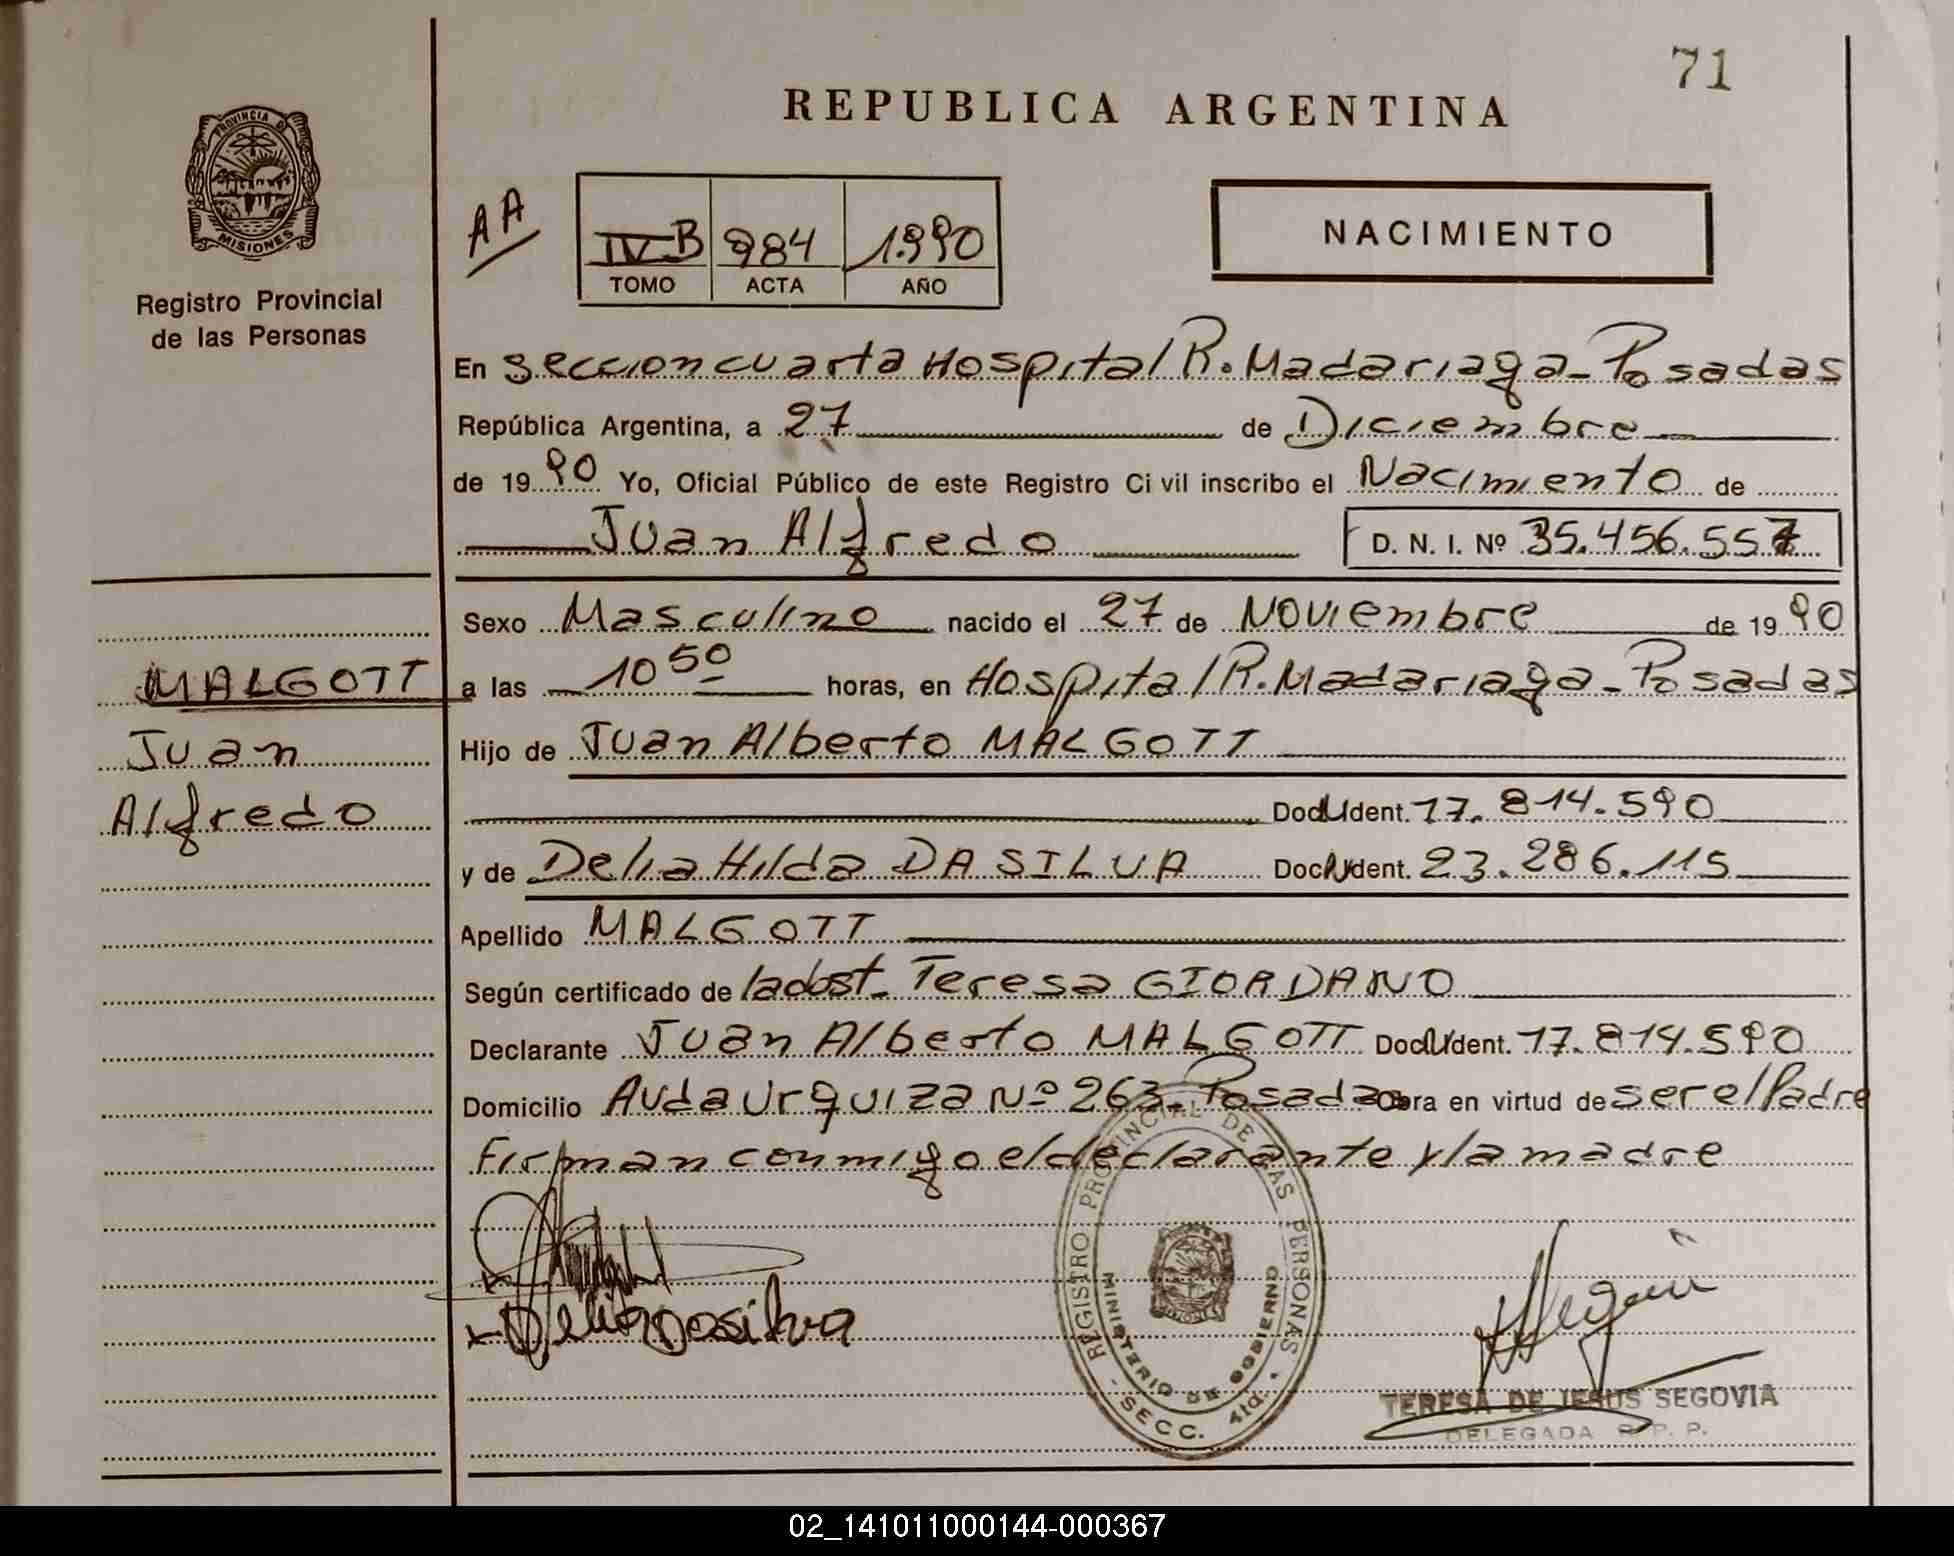 71
REPUBLICA ARGENTINA
PROVINCIA DE
MISIONES
Registro Provincial
de las Personas
AA
IV B 984 1.990
TOMO ACTA AÑO
NACIMIENTO
En seccion cuarta Hospital R. Madariaga - Posadas
República Argentina, a 27 de Diciembre
de 1990 Yo, Oficial Público de este Registro Civil inscribo el Nacimiento de
Juan Alfredo D. N. I. Nº 35.456.557
Sexo Masculino nacido el 27 de Noviembre de 1990
MALGOTT
a las 10 50 horas, en Hospital R. Madariaga - Posadas
Juan
Hijo de Juan Alberto MALGOTT
Alfredo
Doc. Ident. 17.814.590
y de Delia Hilda DA SILVA Doc. Ident. 23.286.115
Apellido MALGOTT
Según certificado de la obst. Teresa GIORDANO
Declarante Juan Alberto MALGOTT Doc. Ident. 17.814.590
Domicilio Avda Urquiza Nº 263 - Posadas Obra en virtud de ser el Padre
Firman conmigo el declarante y la madre
Delia Dasilva
REGISTRO PROVINCIAL DE LAS PERSONAS
MINISTERIO DE GOBIERNO
- SECC. 4ta. -
TERESA DE JESUS SEGOVIA
DELEGADA R. P. P.
02_141011000144-000367